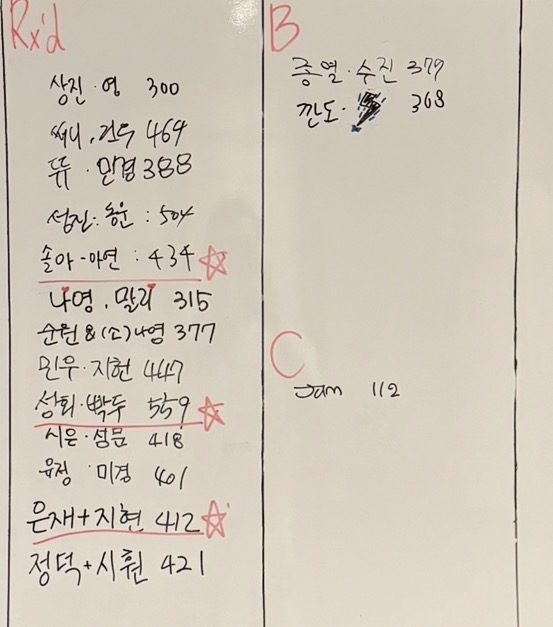 Rx'd
상진·영 300
써니, 건두 469
뜌, 민경 388
섭진: 동운 : 504
솔아-아연 : 434
나영, 말리 315
순원 & (소)나영 377
민우·지헌 447
성희·빡두 559
시은·섬문 418
유정 미경 401
은재+지현 412
정덕+시훤 421
B
종열·수진 379
깐도· 368
C
Jam 112